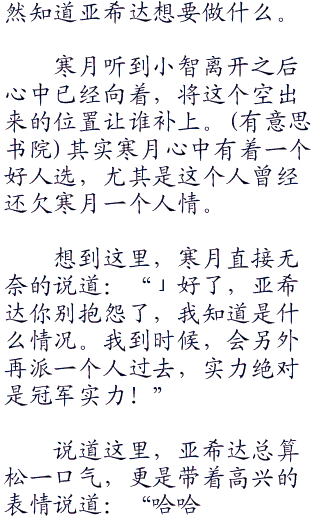 然知道亚希达想要做什么。
寒月听到小智离开之后
心中已经向着，将这个空出
来的位置让谁补上。(有意思
书院) 其实寒月心中有着一个
好人选，尤其是这个人曾经
还欠寒月一个人情。
想到这里，寒月直接无
奈的说道：“」好了，亚希
达你别抱怨了，我知道是什
么情况。我到时候，会另外
再派一个人过去，实力绝对
是冠军实力！”
说道这里，亚希达总算
松一口气，更是带着高兴的
表情说道：“哈哈